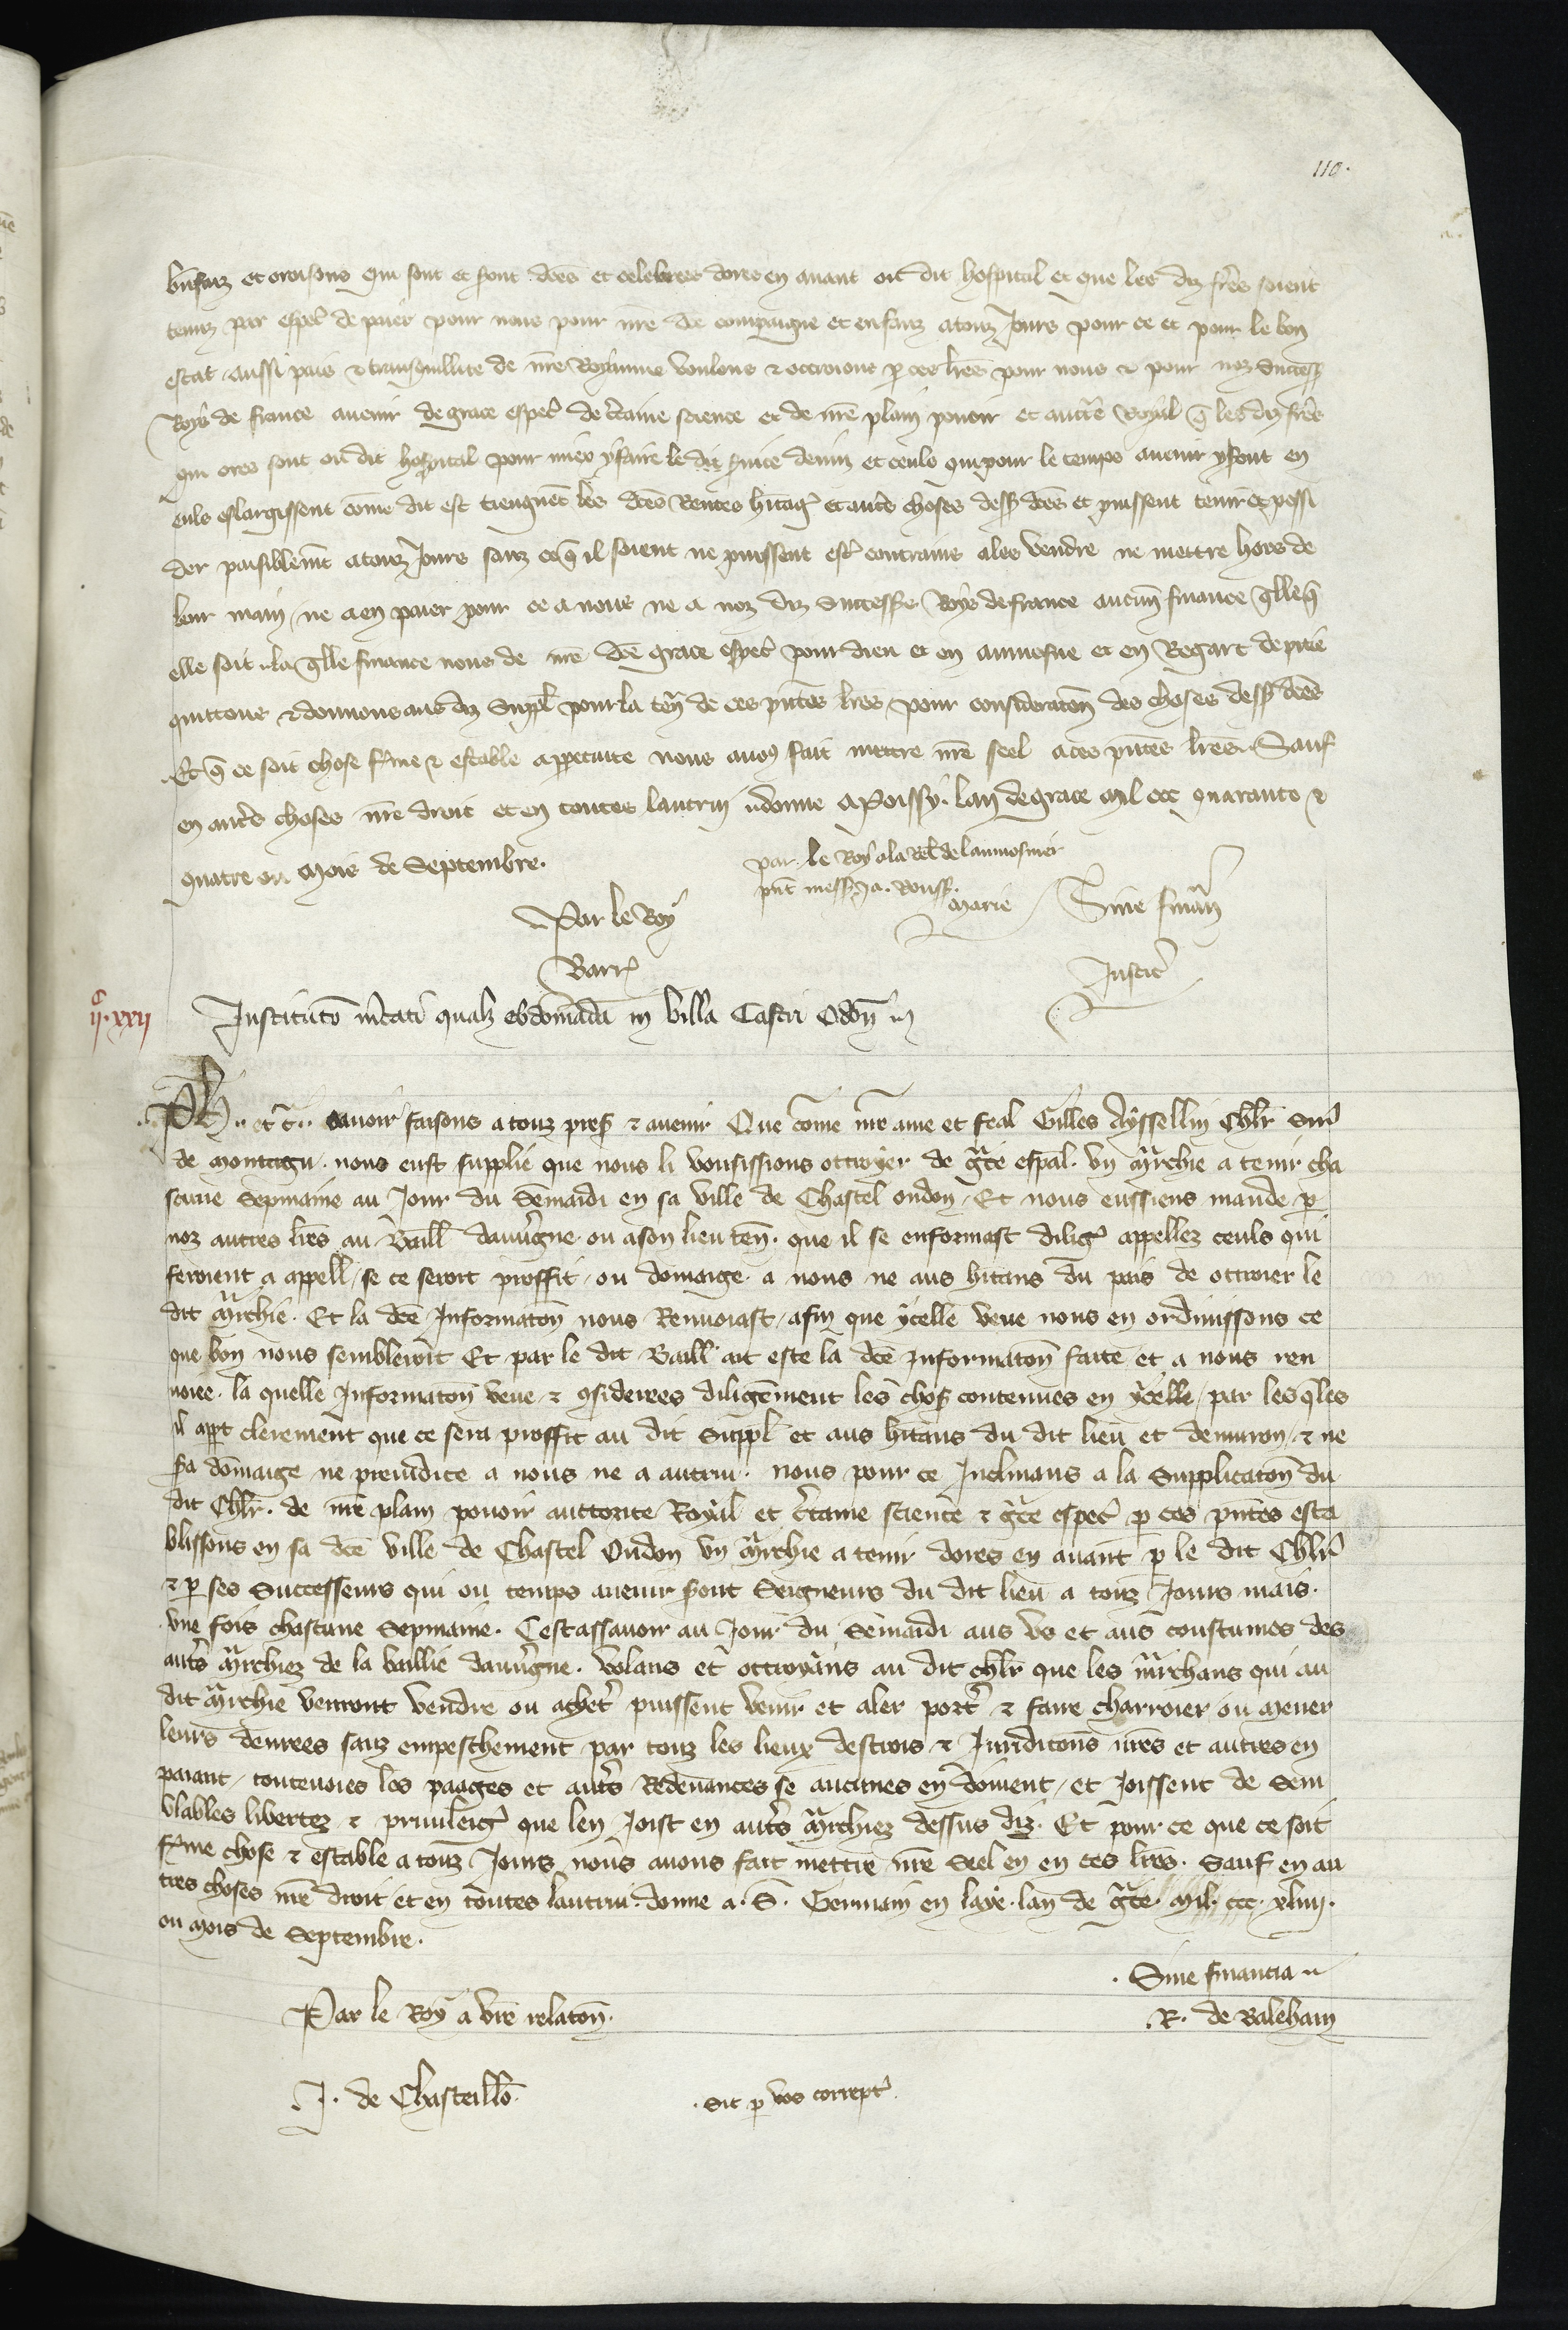 110.
bn̄faiz et oroisons qui sont et s̄ont dc̄es et celebrees dores en avant ou dit hospital et que les diz fr̄es soient
tenuz par esp̄al de prier pour nous pour nr̄e dc̄e compaigne et enfanz a touz Jours pour ce et pour le bon
estat aussi pais & transquillite de nr̄e Royaume voulons & octroions p ces lr̄es pour nous & pour noz Success̄
Roys de france avenir de grace esp̄al de c̄taine science et de nr̄e plain povoir et auct̄te Royal q̄ les diz fr̄es
qui ores sont ou dit hospital pour miex y faire le dit s̄vice devin et ceuls qui pour le temps avenir y s̄ont en
euls eslargissent com̄e dit est tiengnēt les dc̄es Rentes h̄itaḡ et autr̄s choses dess̄ dc̄es et puissent tenir et possi
der paisiblem̄t a touz Jours sanz ce q̄ il soient ne puissent est̄ contrains a les vendre ne mettre hors de
leur main ne a en paier pour ce a nous ne a noz diz Successrs Roys de france aucun̄ finance q̄lle q̄
elle soit la q̄lle finance nous de nr̄e dc̄e grace esp̄al pour dieu et en aumosne et en Regart de pitie
quittons & donnons aus diz Suppl̄ pour la ten̄ de ces pn̄tes lr̄es pour consideracon̄ des choses dess̄ dc̄es
Et q̄ ce soit chose f̄me & estable a ppetuite nous avōs fait mettre nr̄e seel a ces pn̄tes lr̄es Sauf
en autr̄s choses nr̄e droit et en toutes lautrui donne a Poissy lan de grace mil ccc quarante &
quatre ou mois de Septembre.
par le Roy a la rel̄ de laumosnier
pn̄t mess̄ Ja. Rouss̄.
Marie Sine finān
Par le Roy
Barr̄
Justic̄
c
ii.xxii
Institutō m̄cati qualz ebdomāda in villa Castri Odon̄
Ph.. et c̄.. Savoir faisons a touz pres̄ & avenir Que com̄e nr̄e ame et feal Gilles Ayssellin Chlr̄ Sire
de montagu nous eust supplie que nous li vousissions ottroyer de gr̄ce esp̄al. un m̄rchie a tenir cha
scune Sepmaine au Jour du Semaidi en sa ville de Chastel oudon Et nous eussiens mande p
noz autres lr̄es au Baill̄ dauv̄gne ou a son lieuten̄. que il se enformast diliḡ appellez ceuls qui
feroient a appell̄ se ce seroit proffit ou domaige a nous ne aus h̄itans du pais de ottroier le
dit m̄rchie. Et la dc̄e Informacon̄ nous Renvoiast afin que ycelle veue nous en ordinissons ce
que bon nous sembleroit Et par le dit Baill̄ ait este la dc̄e informacon̄ faite et a nous ren
voiee. la quelle Informacon̄ veue & ꝯsiderees diligēment les chos̄ contenues en ycelle par les q̄les
il ap̄t clerement que ce sera proffit au dit Suppl̄ et aus h̄itans du dit lieu et denviron & ne
s̄a dom̄aige ne preiudice a nous ne a autrui. nous pour ce Inclinans a la Supplicacon̄ du
dit Chlr̄. de nr̄e plain povoir auttorite Royal et c̄taine science & gr̄ce espec̄ p ces pn̄tes esta
blissons en sa dc̄e ville de Chastel Oudon un m̄rchie a tenir dores en avant p le dit Chlr̄
& p ses Successeurs qui ou temps avenir s̄ont Seigneurs du dit lieu a touz Jours mais.
une fois chascune Sepmaine. Cestassavoir au Jour du Semaidi aus us et aus coustumes des
autr̄s m̄rchiez de la baillie dauv̄gne. Volans et ottroyans au dit chlr̄ que les m̄rchans qui au
dit m̄rchie venront vendre ou achet̄ puissent venir et aler port̄ & faire charroier ou mener
leurs denrees sanz empeschement par touz les lieux destrois & Juridicons nr̄es et autres en
paiant toutevoies les paages et autr̄s Redevances se aucunes en doivent et Joissent de Sem
blables libertez & privileiḡ que len Joist en autr̄s m̄rchiez dessus diz. Et pour ce que ce soit
f̄me chose & estable a touz Jours nous avons fait mettre nr̄e Seel en en ces lr̄es. Sauf en au
tres choses nr̄e droit et en toutes lautrui. donne a. S. Germain en laye. lan de gr̄ce. mil. ccc. xliiij.
ou mois de Septembre.
Sine financia
Par le Roy a vr̄e relacon̄.
R. de Baleham
J. de Chasteillō.
Sit p vos corrept̄